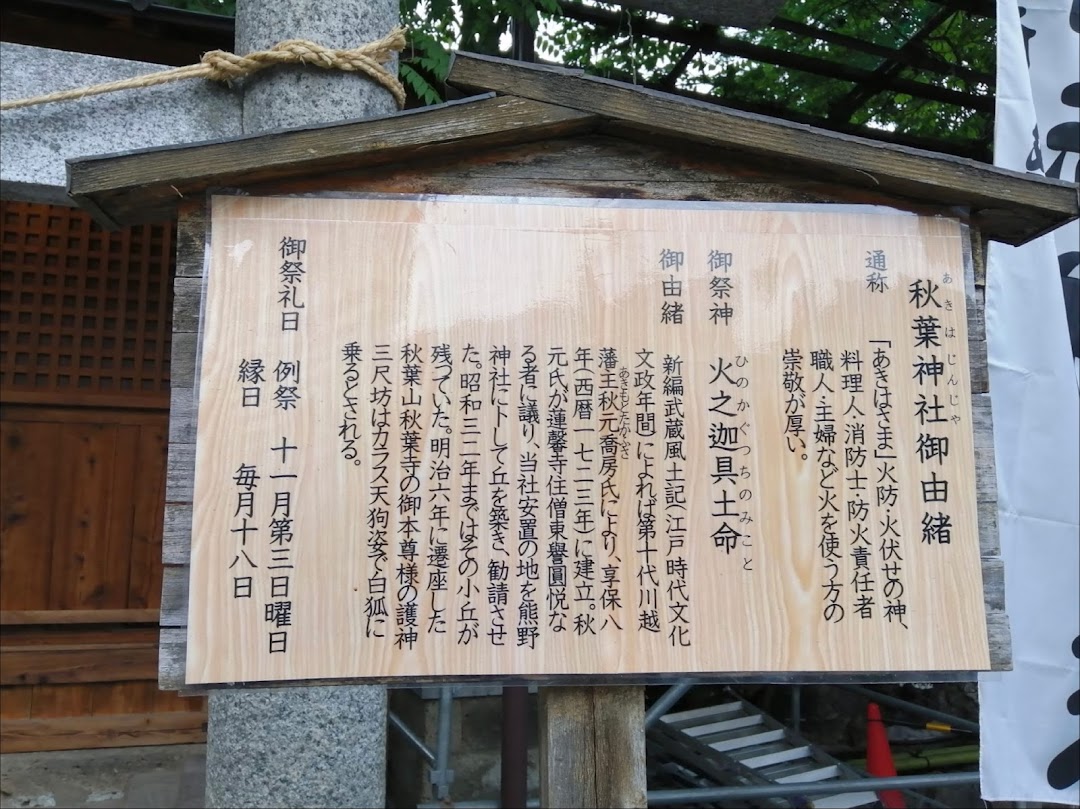 秋葉神社御由緒
あきはじんじゃ
通称
「あきはさま」火防・火伏せの神、
料理人・消防士・防火責任者
職人・主婦など火を使う方の
崇敬が厚い。
御祭神
火之迦具土命
ひのかぐつちのみこと
御由緒
新編武蔵風土記(江戸時代文化
文政年間)によれば第十代川越
藩主秋元喬房氏により、享保八
あきもとたかふさ
年(西暦一七二三年)に建立。秋
元氏が蓮馨寺住僧東譽圓悦な
る者に議り、当社安置の地を熊野
神社に卜して丘を築き、勧請させ
た。昭和三二年まではその小丘が
残っていた。明治六年に遷座した
秋葉山秋葉寺の御本尊様の護神
三尺坊はカラス天狗姿で白狐に
乗るとされる。
御祭礼日
例祭 十一月第三日曜日
縁日 毎月十八日